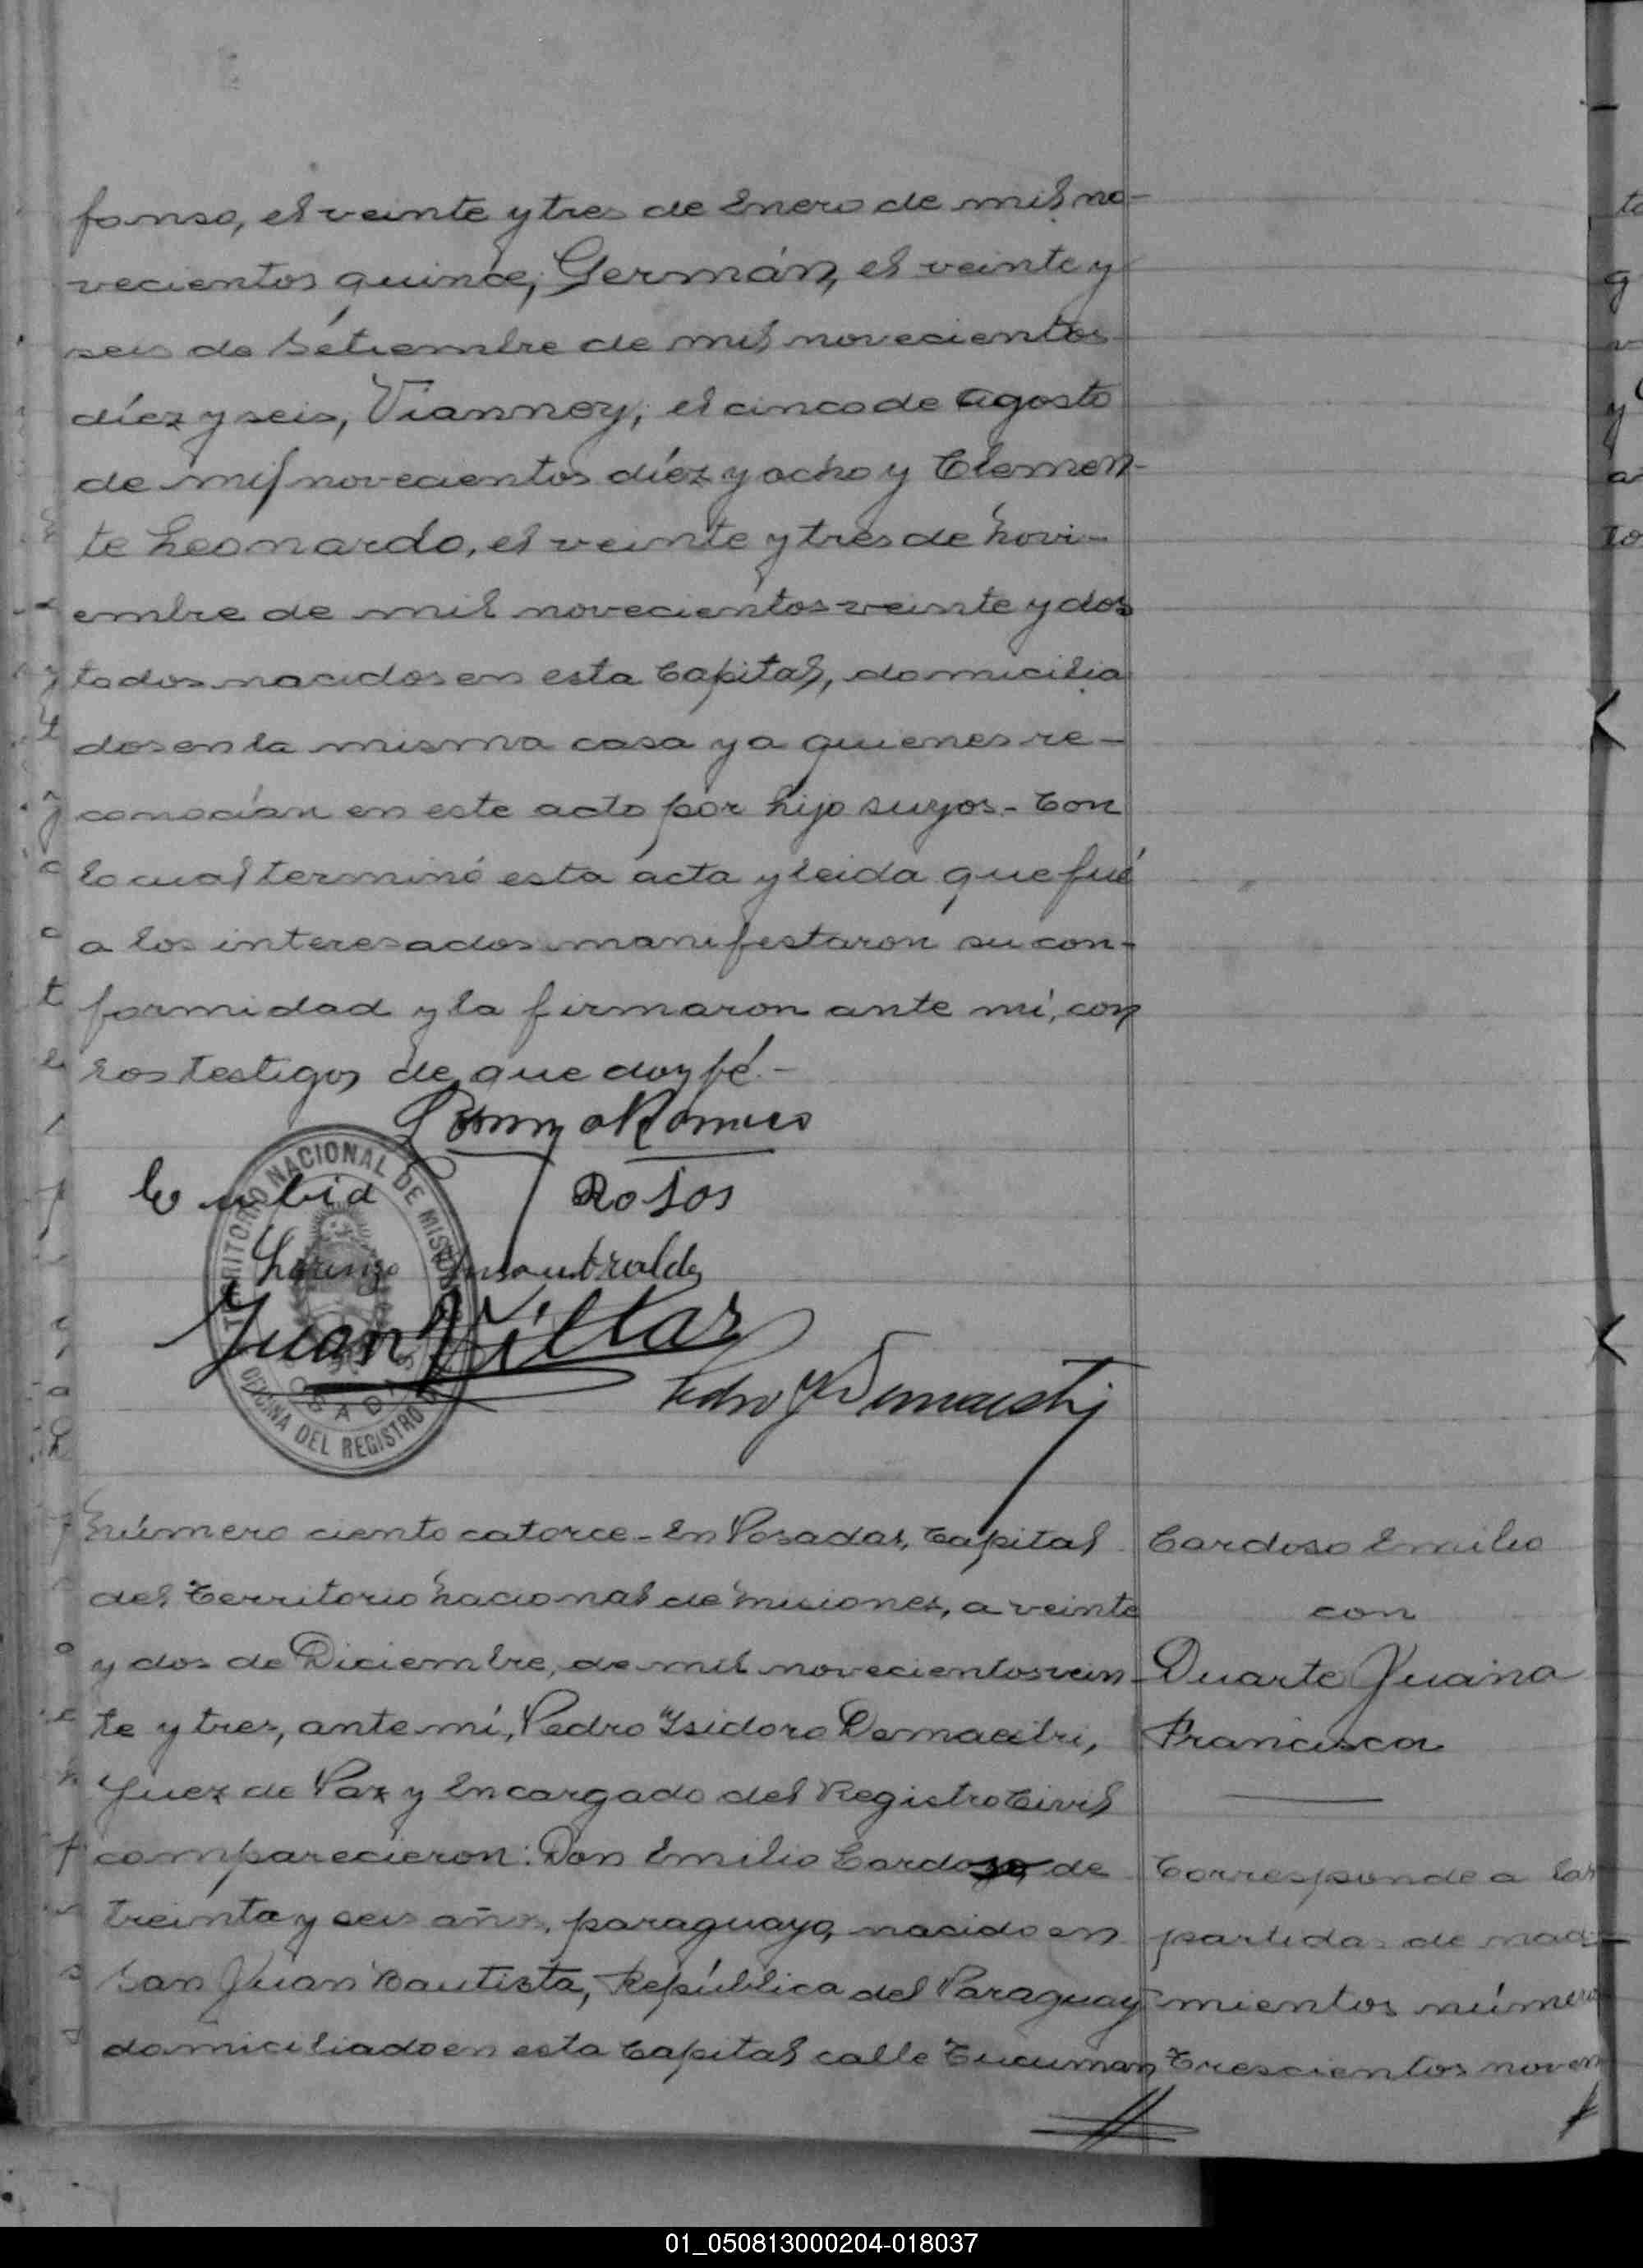 fonso, el veinte y tres de Enero de mil no-
vecientos quince, Germán, el veinte y
seis de Setiembre de mil novecientos
díez y seis, Vianney, el cinco de Agosto
de mil novecientos díez y ocho y Clemen-
te Leonardo, el veinte y tres de Novi-
embre de mil novecientos veinte y dos
todos nacidos en esta Capital, domicilia
dos en la misma casa y a quienes re-
conocían en este acto por hijo suyos.- Con
lo cual terminó esta acta y leida que fué
a los interesados manifestaron su con-
formidad y la firmaron ante mí, con
los testigos de que doy fé.-
Romero
Rojas
Lorenzo Insaurralde
Juan Villar
Pedro Y
TERRITORIO NACIONAL DE MISIONES
POSADAS
OFICINA DEL REGISTRO
Número ciento catorce - En Posadas, Capital
del Territorio Nacional de Misiones, a veinte
y dos de Diciembre, de mil novecientos vein-
te y tres, ante mí, Pedro Ysidoro
Juez de Paz y Encargado del Registro Civil
comparecieron: Don Emilio Cardoso, de
treinta y seis años, paraguayo, nacido en
San Juan Bautista, República del Paraguay
domiciliado en esta Capital calle Tucuman
Cardoso Emilio
con
Duarte Juana
Francisca
Corresponde a las
partidas de naci-
mientos número
Trescientos noven
01_050813000204-018037